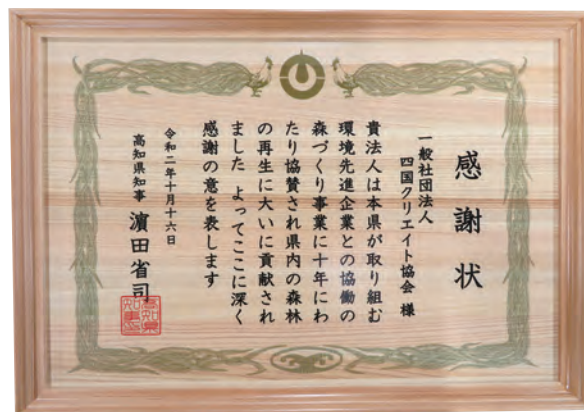 感謝状
一般社団法人
四国クリエイト協会 様
貴法人は本県が取り組む
環境先進企業との協働の
森づくり事業に十年にわ
たり協賛され県内の森林
の再生に大いに貢献され
ました よってここに深く
感謝の意を表します
令和二年十月十六日
高知県知事 濵田省司
高知県
知事之印